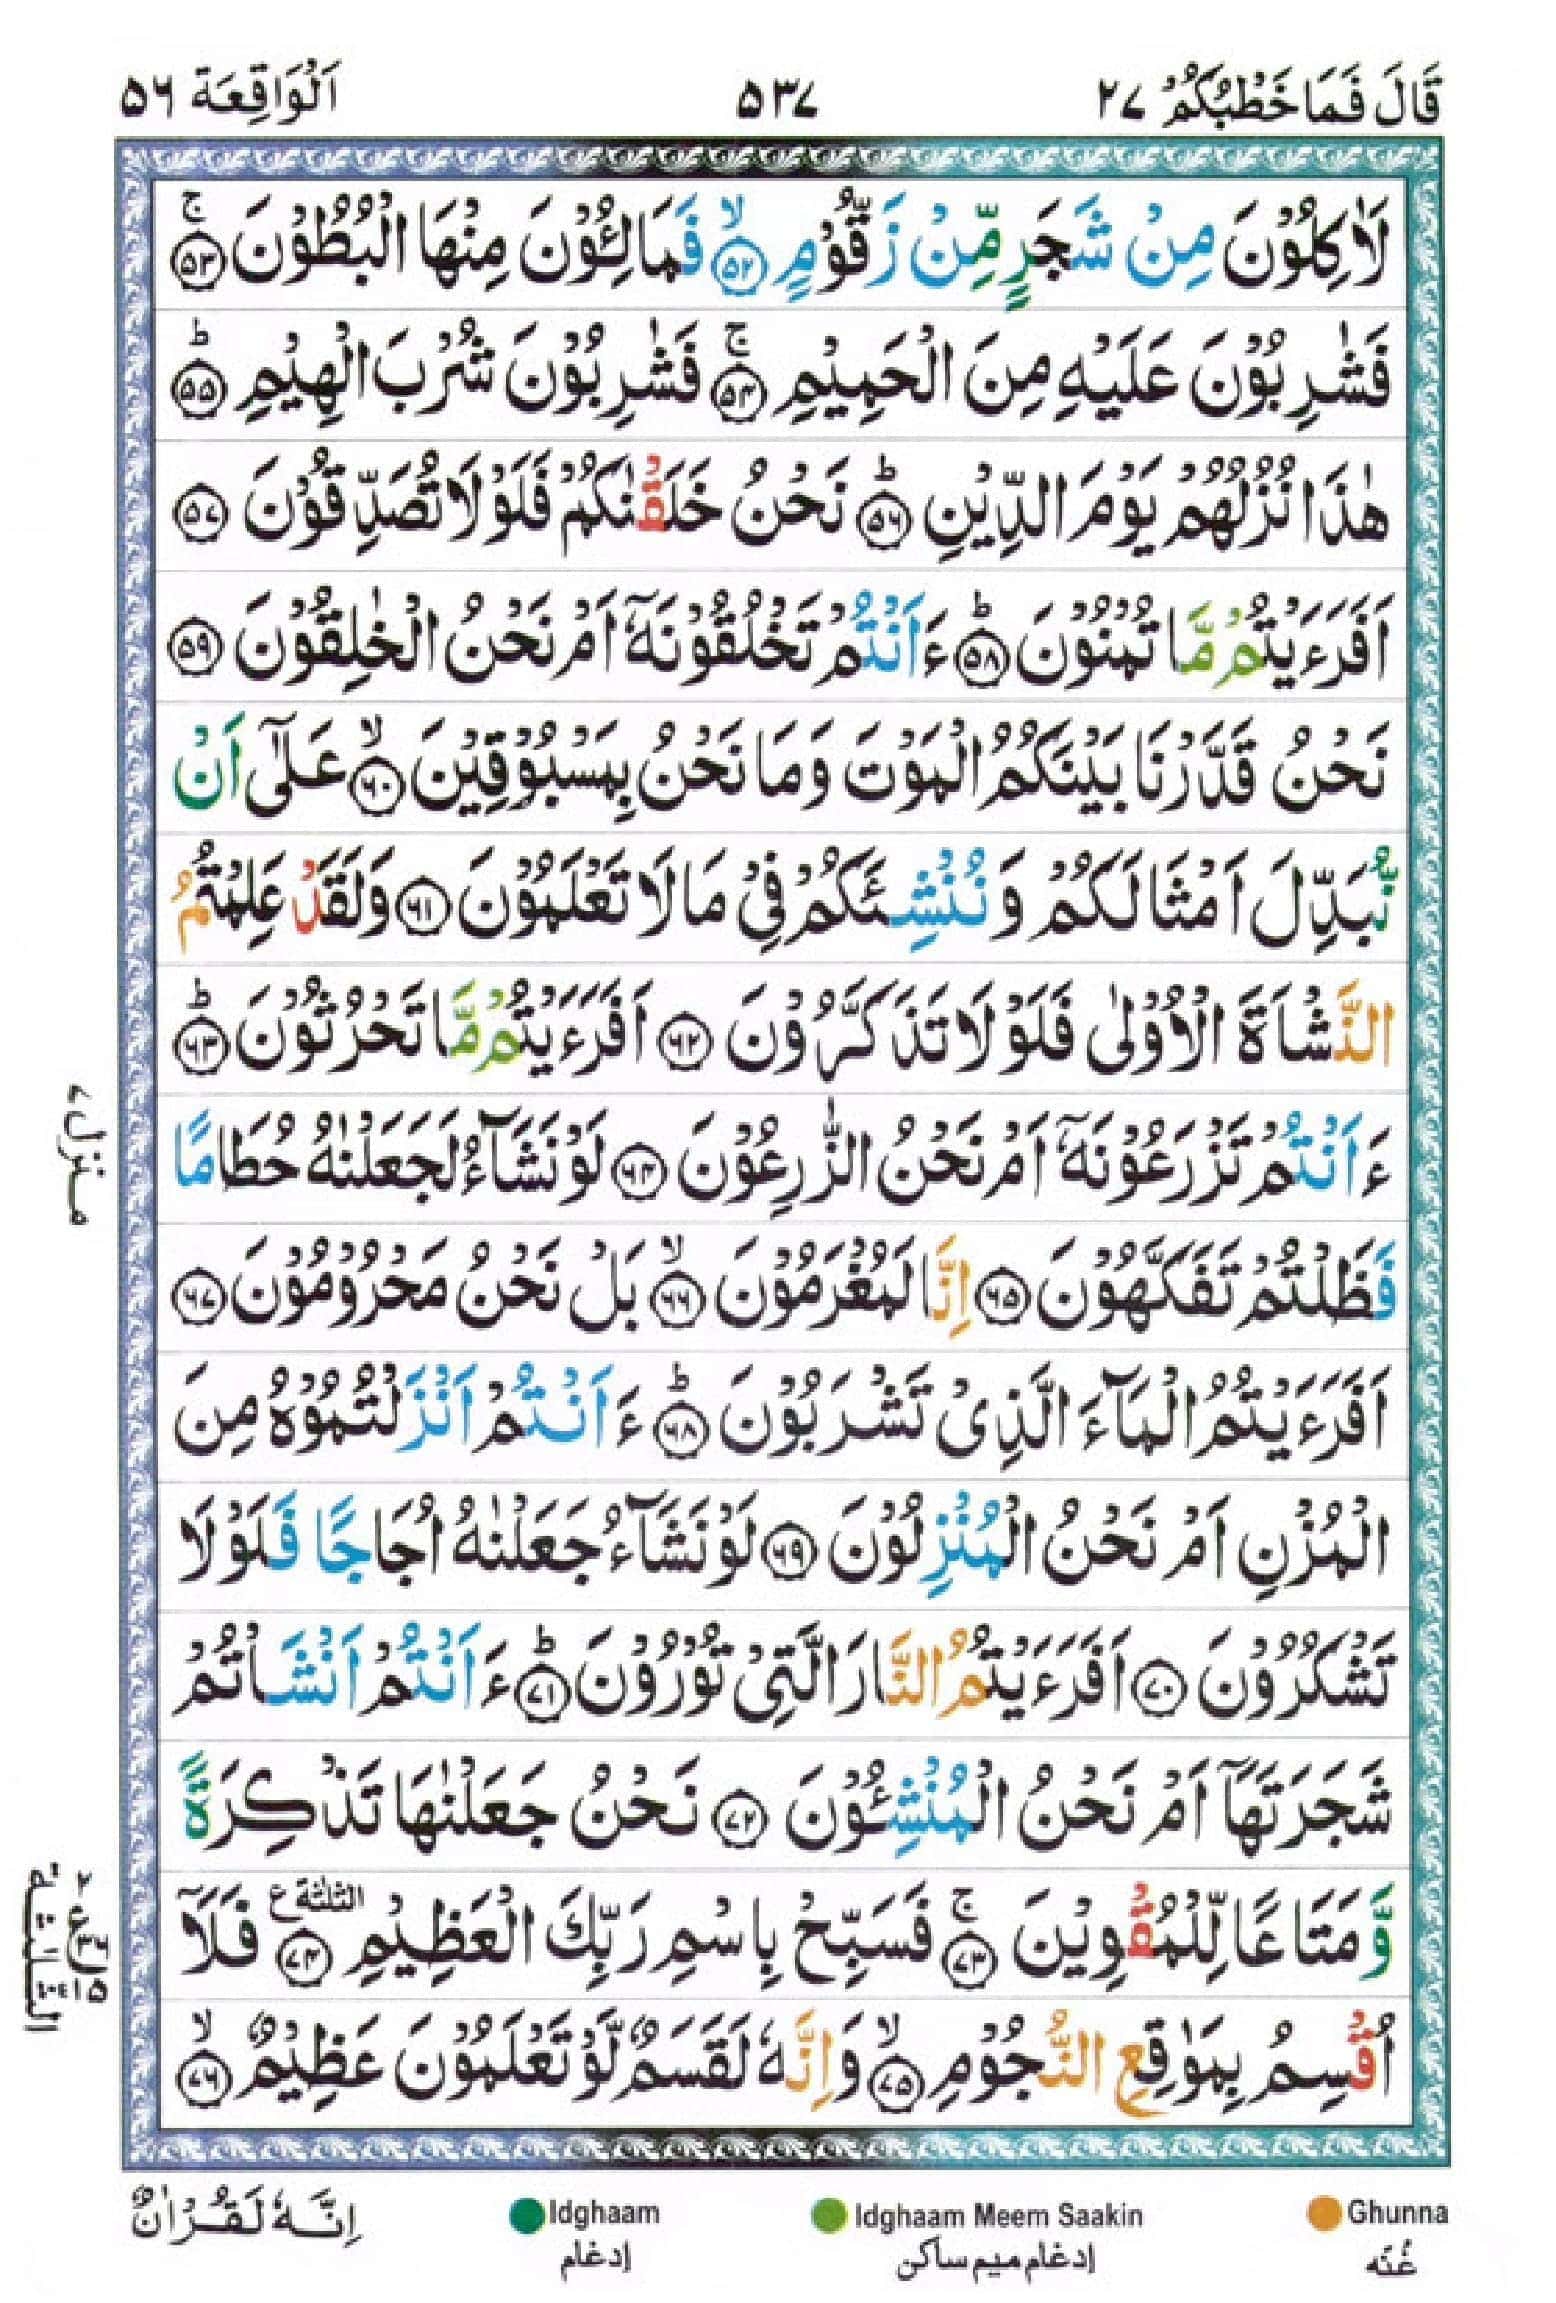 قَالَ فَمَا خَطْبُكُمْ ٢٧ ٥٣٧ اَلْوَاقِعَة ٥٦
لَاٰكِلُوْنَ مِنْ شَجَرٍ مِّنْ زَقُّوْمٍ ۙ﴿۵۲﴾ فَمَالِـُٔوْنَ مِنْهَا الْبُطُوْنَ ۚ﴿۵۳﴾
فَشٰرِبُوْنَ عَلَيْهِ مِنَ الْحَمِيْمِ ۚ﴿۵۴﴾ فَشٰرِبُوْنَ شُرْبَ الْهِيْمِ ؕ﴿۵۵﴾
هٰذَا نُزُلُهُمْ يَوْمَ الدِّيْنِ ؕ﴿۵۶﴾ نَحْنُ خَلَقْنٰكُمْ فَلَوْلَا تُصَدِّقُوْنَ ﴿۵۷﴾
اَفَرَءَيْتُمْ مَّا تُمْنُوْنَ ؕ﴿۵۸﴾ ءَاَنْتُمْ تَخْلُقُوْنَهٗۤ اَمْ نَحْنُ الْخٰلِقُوْنَ ﴿۵۹﴾
نَحْنُ قَدَّرْنَا بَيْنَكُمُ الْمَوْتَ وَمَا نَحْنُ بِمَسْبُوْقِيْنَ ۙ﴿۶۰﴾ عَلٰۤى اَنْ
نُّبَدِّلَ اَمْثَالَكُمْ وَنُنْشِئَكُمْ فِىْ مَا لَا تَعْلَمُوْنَ ﴿۶۱﴾ وَلَقَدْ عَلِمْتُمُ
النَّشْاَةَ الْاُوْلٰى فَلَوْلَا تَذَكَّرُوْنَ ﴿۶۲﴾ اَفَرَءَيْتُمْ مَّا تَحْرُثُوْنَ ؕ﴿۶۳﴾
ءَاَنْتُمْ تَزْرَعُوْنَهٗۤ اَمْ نَحْنُ الزّٰرِعُوْنَ ﴿۶۴﴾ لَوْ نَشَآءُ لَجَعَلْنٰهُ حُطَامًا
فَظَلْتُمْ تَفَكَّهُوْنَ ﴿۶۵﴾ اِنَّا لَمُغْرَمُوْنَ ۙ﴿۶۶﴾ بَلْ نَحْنُ مَحْرُوْمُوْنَ ﴿۶۷﴾
اَفَرَءَيْتُمُ الْمَآءَ الَّذِىْ تَشْرَبُوْنَ ؕ﴿۶۸﴾ ءَاَنْتُمْ اَنْزَلْتُمُوْهُ مِنَ
الْمُزْنِ اَمْ نَحْنُ الْمُنْزِلُوْنَ ﴿۶۹﴾ لَوْ نَشَآءُ جَعَلْنٰهُ اُجَاجًا فَلَوْلَا
تَشْكُرُوْنَ ﴿۷۰﴾ اَفَرَءَيْتُمُ النَّارَ الَّتِىْ تُوْرُوْنَ ؕ﴿۷۱﴾ ءَاَنْتُمْ اَنْشَاْتُمْ
شَجَرَتَهَاۤ اَمْ نَحْنُ الْمُنْشِـُٔوْنَ ﴿۷۲﴾ نَحْنُ جَعَلْنٰهَا تَذْكِرَةً
وَّمَتَاعًا لِّلْمُقْوِيْنَ ۚ﴿۷۳﴾ فَسَبِّحْ بِاسْمِ رَبِّكَ الْعَظِيْمِ ﴿۷۴﴾ الثلثة ع فَلَاۤ
اُقْسِمُ بِمَوٰقِعِ النُّجُوْمِ ۙ﴿۷۵﴾ وَاِنَّهٗ لَقَسَمٌ لَّوْ تَعْلَمُوْنَ عَظِيْمٌ ۙ﴿۷۶﴾
منزل ٧
Ghunna غُنّه
Idghaam Meem Saakin إدغام ميم ساكن
Idghaam إدغام
اِنَّهٗ لَقُرْاٰنٌ